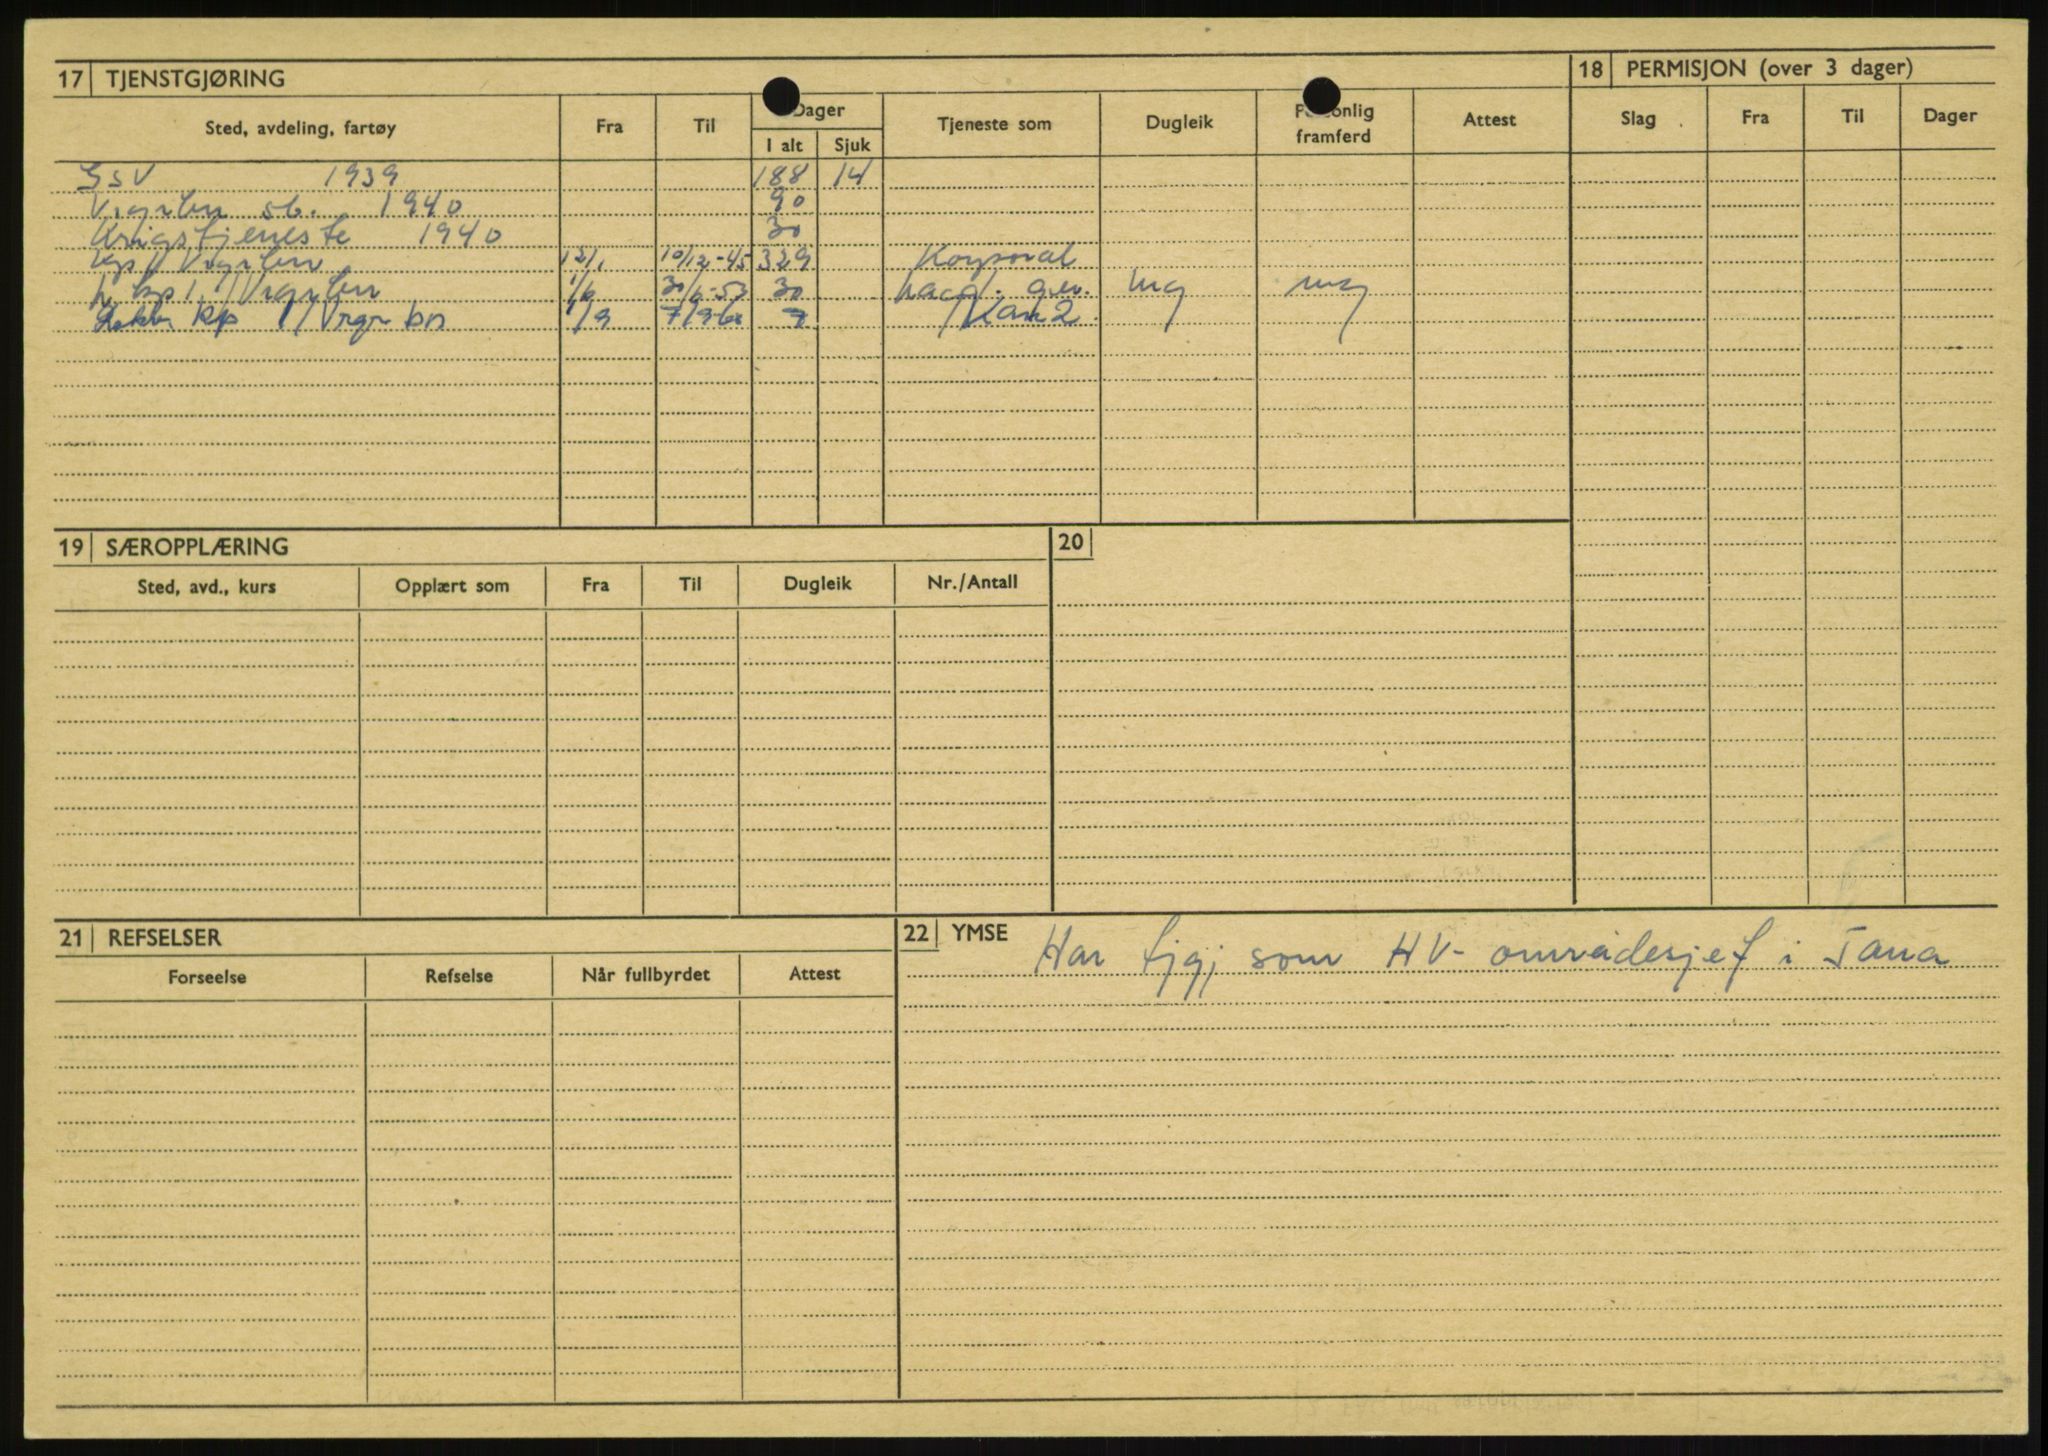 17 TJENSTGJØRING
18 PERMISJON (over 3 dager)
Sted, avdeling, fartøy Fra Til Dager Tjeneste som Dugleik framferd Attest Slag Fra Til Dager
I alt Sjuk
GSV 1939 188 14
sb. 1940 90
Krigstjeneste 1940 30
Kp 12/1 10/12-45 329 Korporal
kp 1/6 30/6-53 30 Mg mg
kp 1/9 7/9 7
19 SÆROPPLÆRING
20
Sted, avd., kurs Opplært som Fra Til Dugleik Nr./Antall
21 REFSELSER
Forseelse Refselse Når fullbyrdet Attest
22 YMSE Har tjgj som HV-områdesjef i Tana